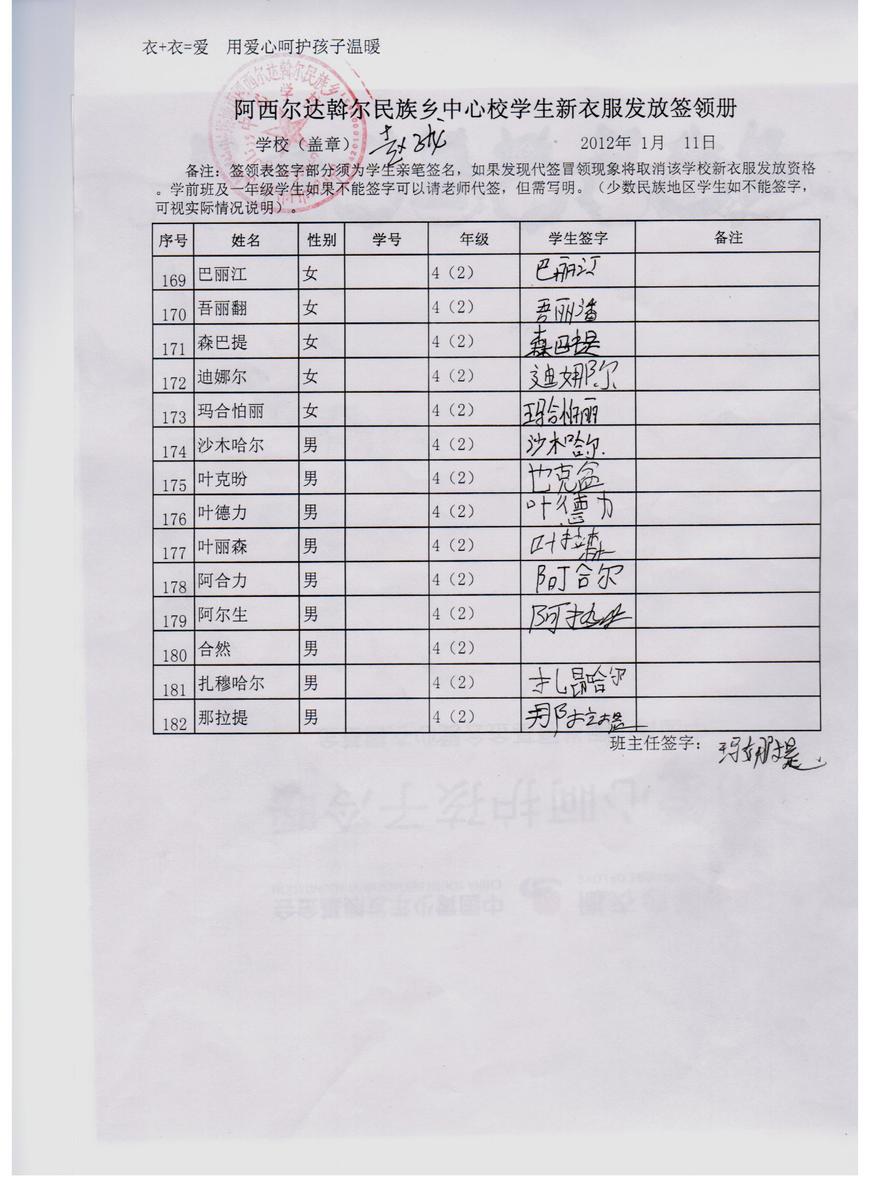 衣+衣=爱 用爱心呵护孩子温暖
阿西尔达斡尔民族乡中心校学生新衣服发放签领册
学校（盖章） 2012年 1月 11日
备注：签领表签字部分须为学生亲笔签名，如果发现代签冒领现象将取消该学校新衣服发放资格
。学前班及一年级学生如果不能签字可以请老师代签，但需写明。（少数民族地区学生如不能签字，
可视实际情况说明）。
序号 姓名 性别 学号 年级 学生签字 备注
169 巴丽江 女 4（2） 巴丽江
170 吾丽翻 女 4（2） 吾丽潘
171 森巴提 女 4（2） 森巴提
172 迪娜尔 女 4（2） 迪娜尔
173 玛合怕丽 女 4（2） 玛合怕丽
174 沙木哈尔 男 4（2） 沙木哈尔
175 叶克盼 男 4（2） 也克盆
176 叶德力 男 4（2） 叶德力
177 叶丽森 男 4（2） 叶拉森
178 阿合力 男 4（2） 阿合尔
179 阿尔生 男 4（2）
180 合然 男 4（2）
181 扎穆哈尔 男 4（2） 扎昆哈尔
182 那拉提 男 4（2） 那拉提
班主任签字：